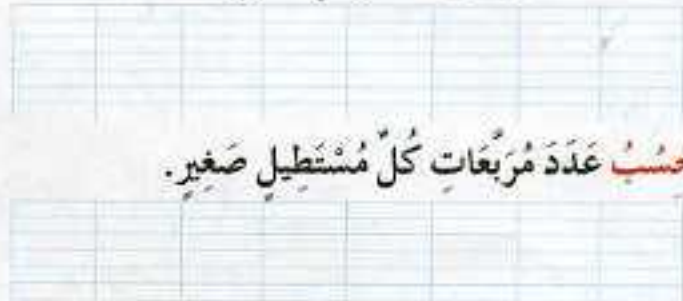 عَدَدَ مُرَبَّعَاتِ كُلِّ مُسْتَطِيلٍ صَغِيرٍ.